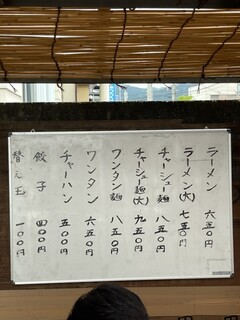 ラーメン 六五〇円
ラーメン(大) 七五〇円
チャーシュー麺 八五〇円
チャーシュー麺(大) 九五〇円
ワンタン麺 八五〇円
ワンタン 六五〇円
チャーハン 五〇〇円
餃子 四〇〇円
替え玉 一〇〇円